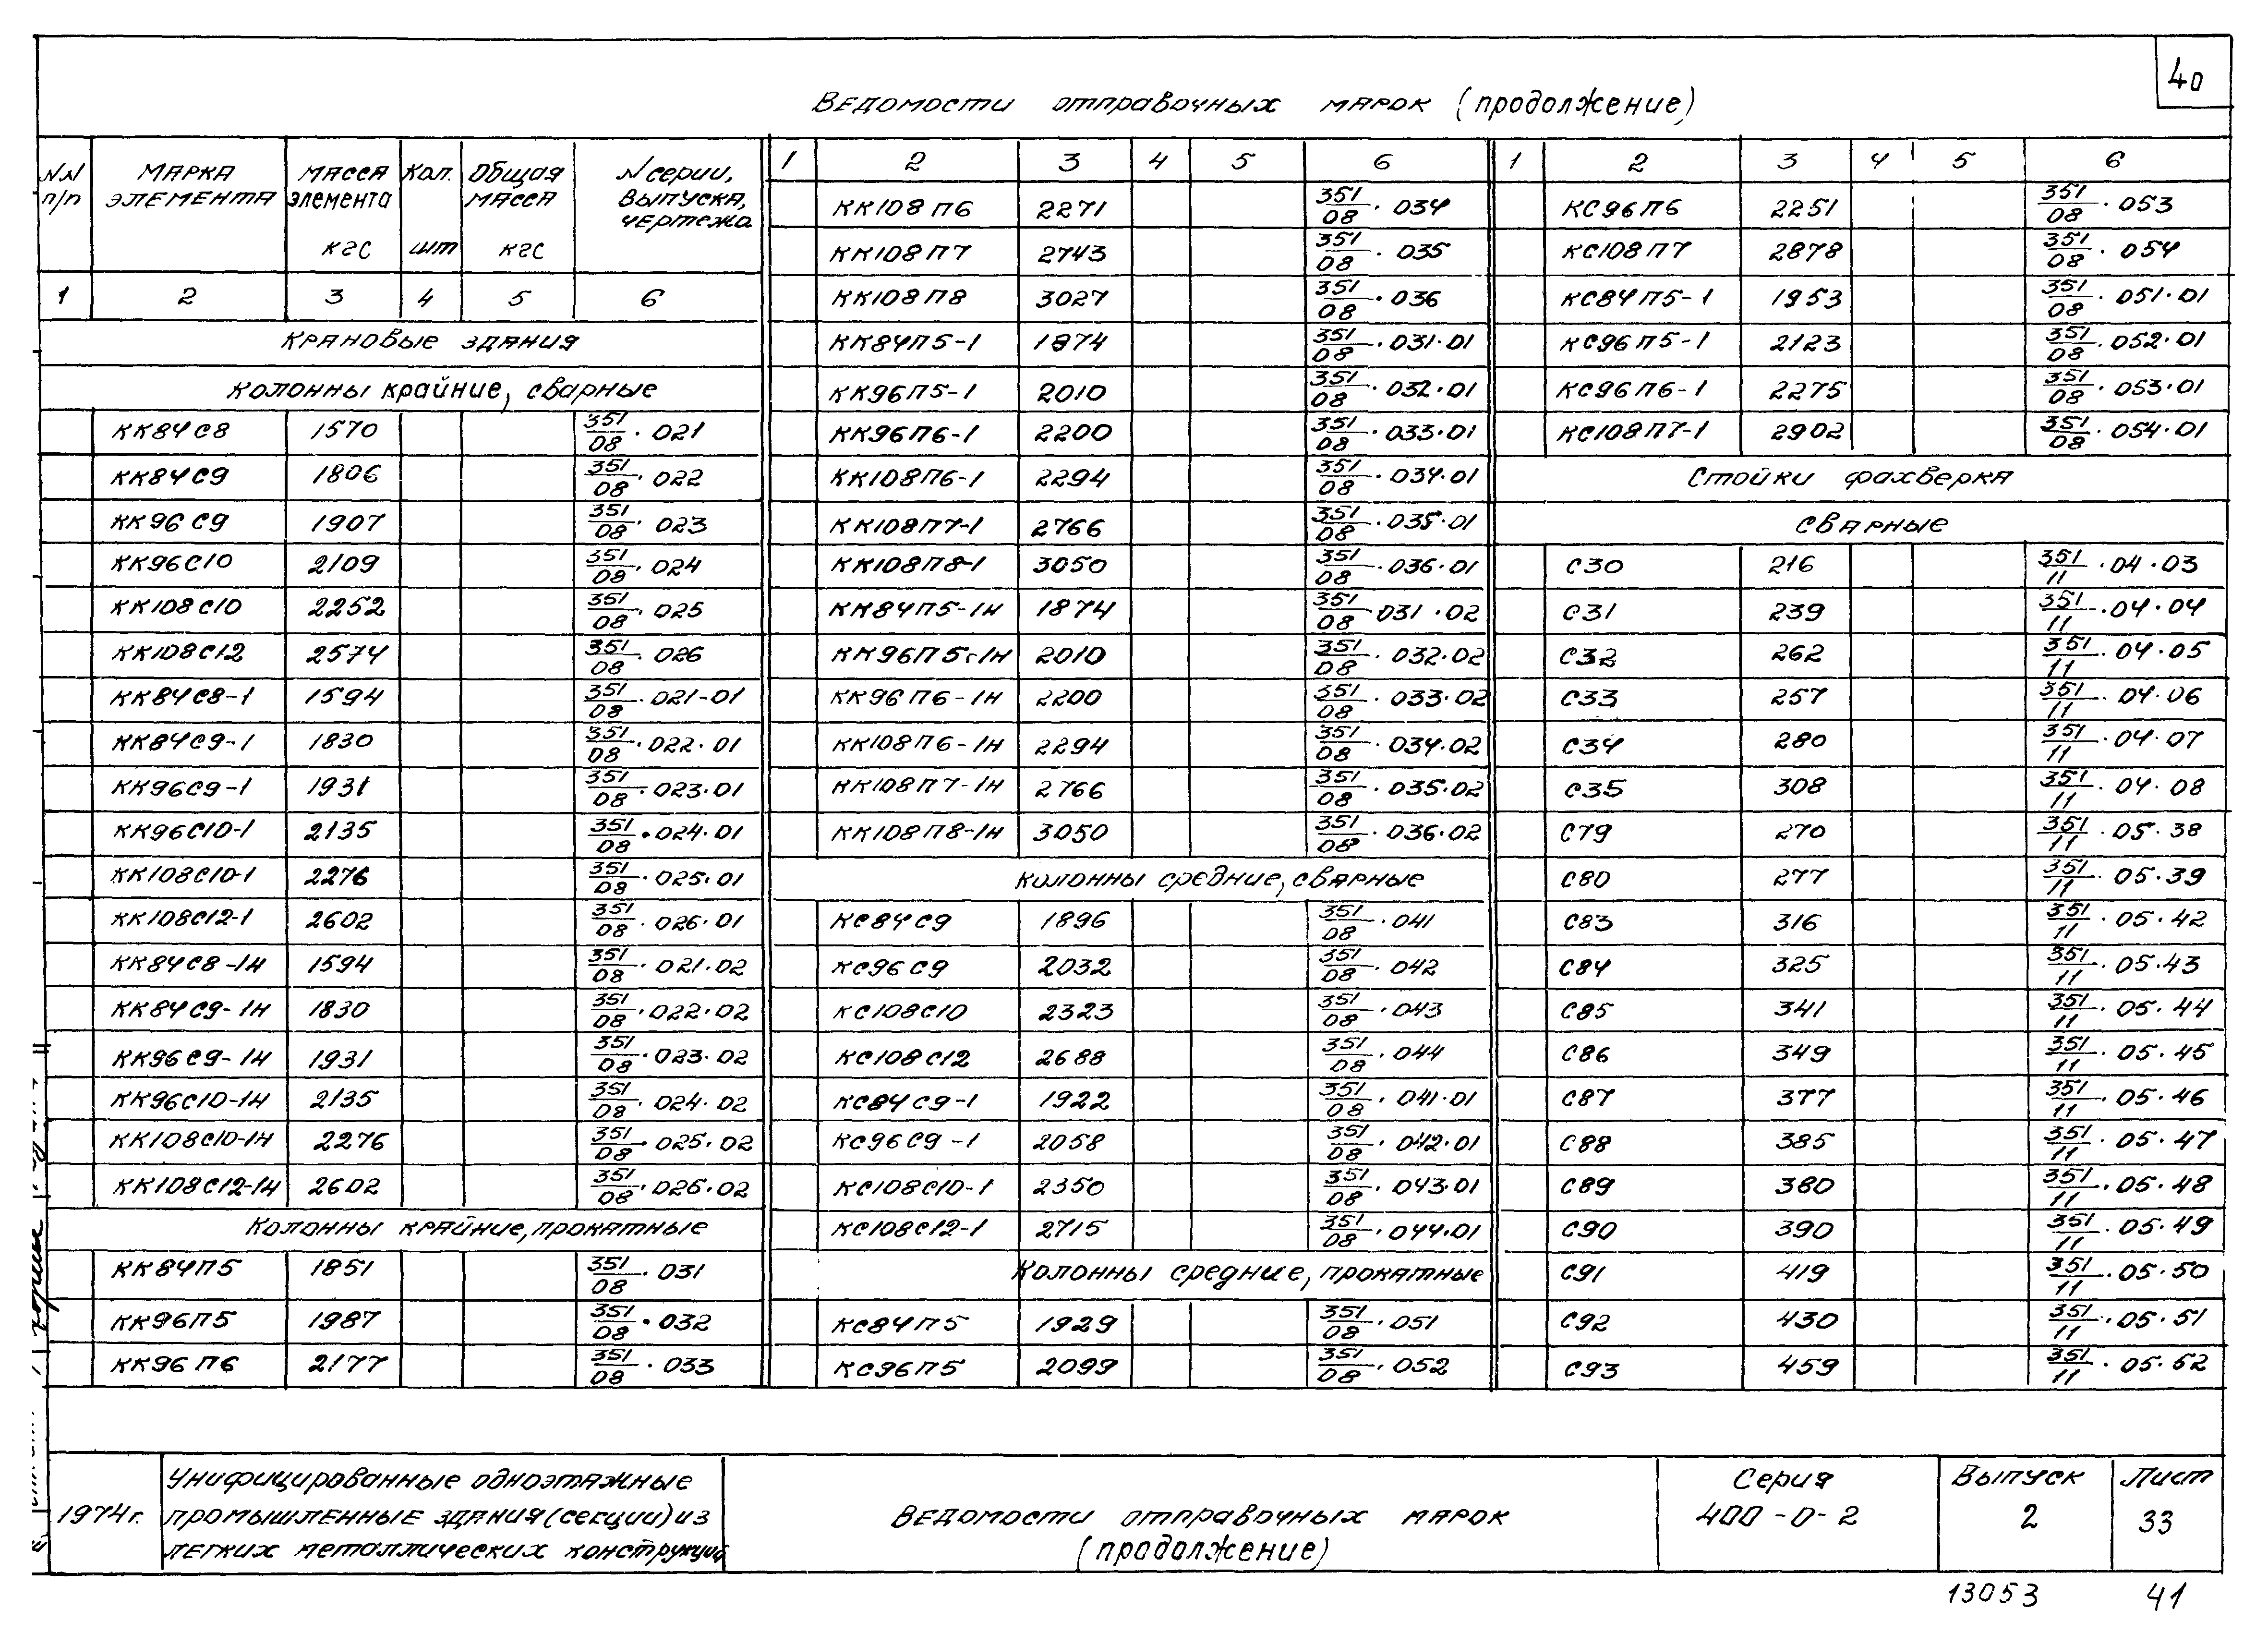 40
Ведомости отправочных марок (продолжение)
NN п/п | Марка элемента | Масса элемента кгс | Кол. шт | Общая масса кгс | N серии, выпуска, чертежа
1 2 3 4 5 6
Крановые здания
Колонны крайние, сварные
КК84С8 1570 351/08 · 021
КК84С9 1806 351/08 · 022
КК96С9 1907 351/08 · 023
КК96С10 2109 351/08 · 024
КК108С10 2252 351/08 · 025
КК108С12 2574 351/08 · 026
КК84С8-1 1594 351/08 · 021-01
КК84С9-1 1830 351/08 · 022·01
КК96С9-1 1931 351/08 · 023·01
КК96С10-1 2135 351/08 · 024·01
КК108С10-1 2276 351/08 · 025·01
КК108С12-1 2602 351/08 · 026·01
КК84С8-1Н 1594 351/08 · 021·02
КК84С9-1Н 1830 351/08 · 022·02
КК96С9-1Н 1931 351/08 · 023·02
КК96С10-1Н 2135 351/08 · 024·02
КК108С10-1Н 2276 351/08 · 025·02
КК108С12-1Н 2602 351/08 · 026·02
Колонны крайние, прокатные
КК84П5 1851 351/08 · 031
КК96П5 1987 351/08 · 032
КК96П6 2177 351/08 · 033
1 2 3 4 5 6
КК108П6 2271 351/08 · 034
КК108П7 2743 351/08 · 035
КК108П8 3027 351/08 · 036
КК84П5-1 1874 351/08 · 031·01
КК96П5-1 2010 351/08 · 032·01
КК96П6-1 2200 351/08 · 033·01
КК108П6-1 2294 351/08 · 034·01
КК108П7-1 2766 351/08 · 035·01
КК108П8-1 3050 351/08 · 036·01
КК84П5-1Н 1874 351/08 · 031·02
КК96П5-1Н 2010 351/08 · 032·02
КК96П6-1Н 2200 351/08 · 033·02
КК108П6-1Н 2294 351/08 · 034·02
КК108П7-1Н 2766 351/08 · 035·02
КК108П8-1Н 3050 351/08 · 036·02
Колонны средние, сварные
КС84С9 1896 351/08 · 041
КС96С9 2032 351/08 · 042
КС108С10 2323 351/08 · 043
КС108С12 2688 351/08 · 044
КС84С9-1 1922 351/08 · 041·01
КС96С9-1 2058 351/08 · 042·01
КС108С10-1 2350 351/08 · 043·01
КС108С12-1 2715 351/08 · 044·01
Колонны средние, прокатные
КС84П5 1929 351/08 · 051
КС96П5 2099 351/08 · 052
1 2 3 4 5 6
КС96П6 2251 351/08 · 053
КС108П7 2878 351/08 · 054
КС84П5-1 1953 351/08 · 051·01
КС96П5-1 2123 351/08 · 052·01
КС96П6-1 2275 351/08 · 053·01
КС108П7-1 2902 351/08 · 054·01
Стойки фахверка
сварные
С30 216 351/11 · 04·03
С31 239 351/11 · 04·04
С32 262 351/11 · 04·05
С33 257 351/11 · 04·06
С34 280 351/11 · 04·07
С35 308 351/11 · 04·08
С79 270 351/11 · 05·38
С80 277 351/11 · 05·39
С83 316 351/11 · 05·42
С84 325 351/11 · 05·43
С85 341 351/11 · 05·44
С86 349 351/11 · 05·45
С87 377 351/11 · 05·46
С88 385 351/11 · 05·47
С89 380 351/11 · 05·48
С90 390 351/11 · 05·49
С91 419 351/11 · 05·50
С92 430 351/11 · 05·51
С93 459 351/11 · 05·52
1974г.
Унифицированные одноэтажные
промышленные здания (секции) из
легких металлических конструкций
Ведомости отправочных марок
(продолжение)
Серия
400-0-2
Выпуск
2
Лист
33
13053 41